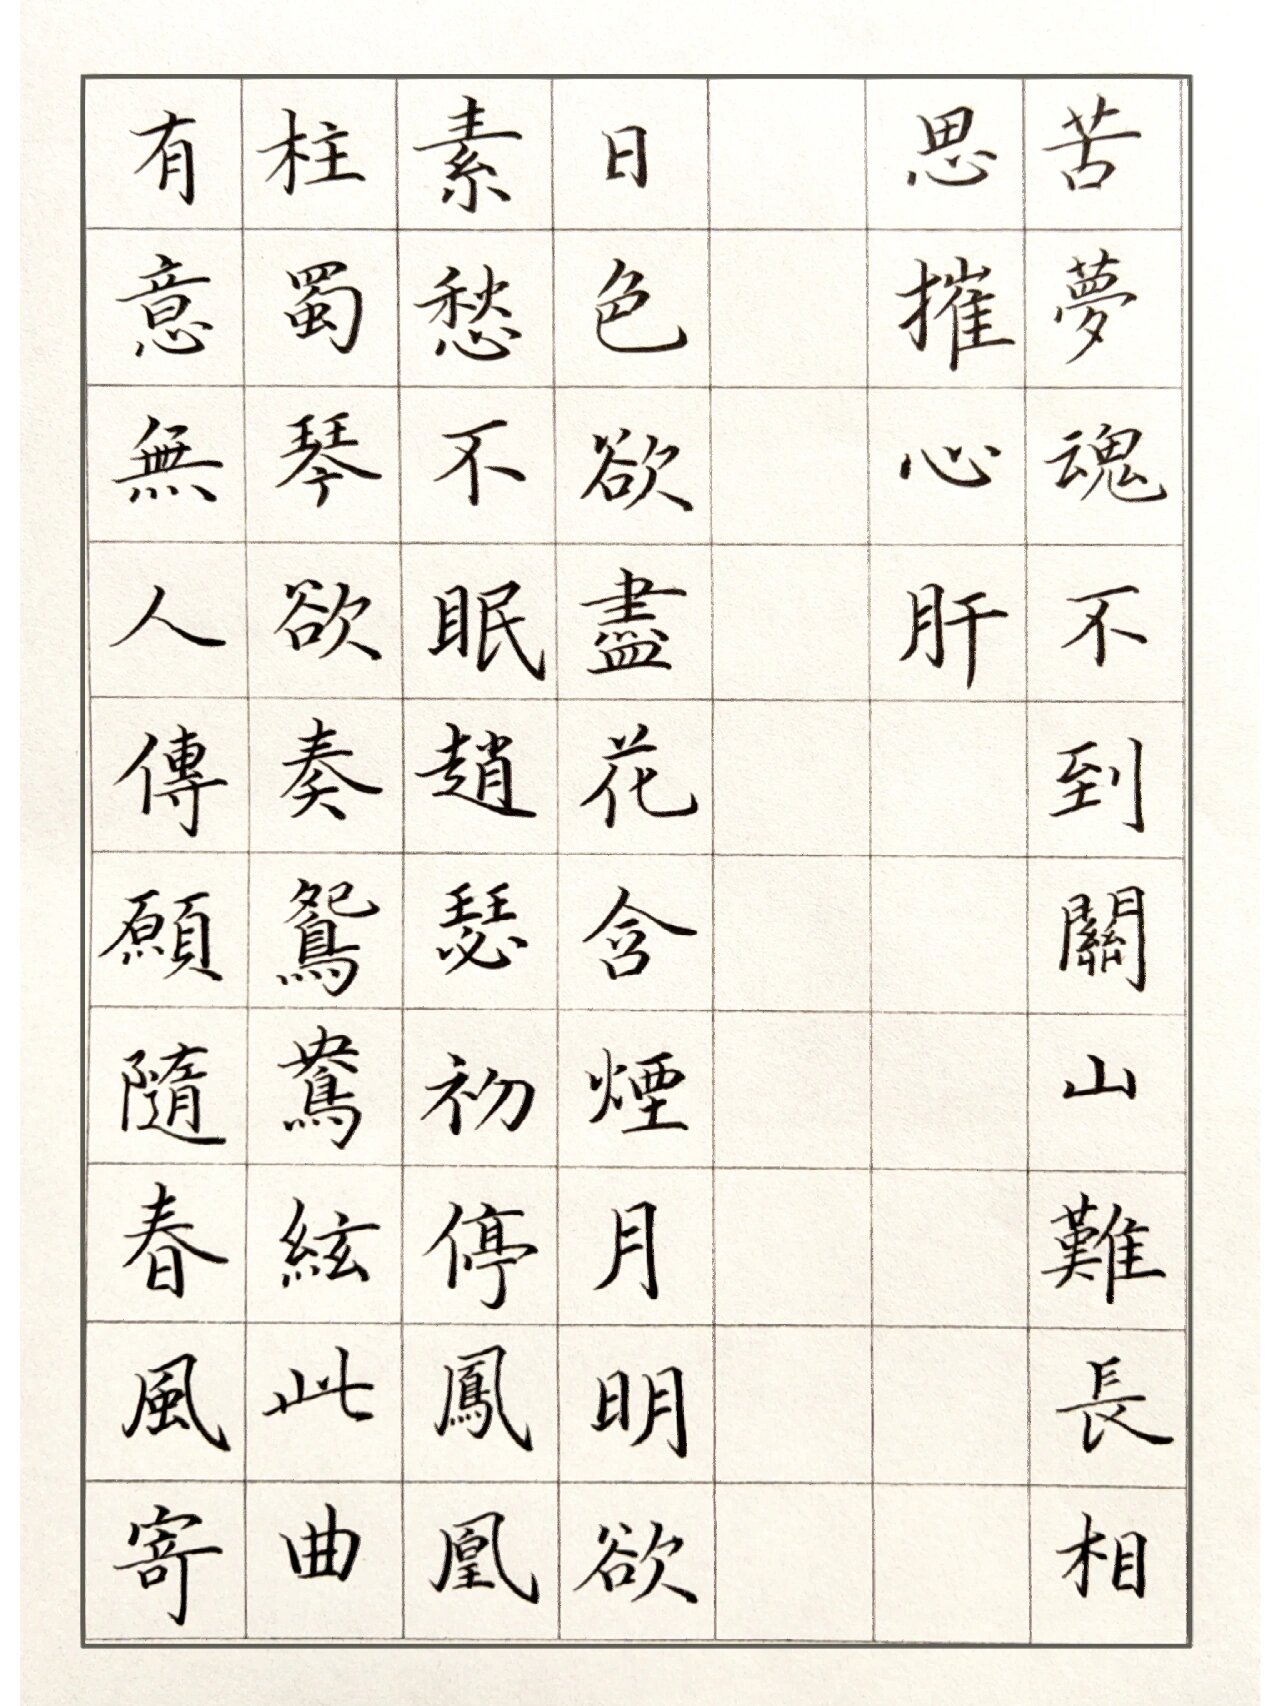 苦夢魂不到關山難長相
思摧心肝
日色欲盡花含煙月明欲
素愁不眠趙瑟初停鳳凰
柱蜀琴欲奏鴛鴦絃此曲
有意無人傳願隨春風寄